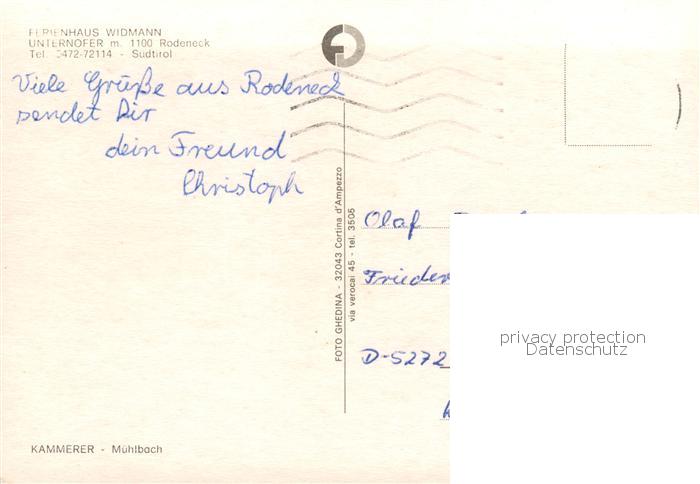 FERIENHAUS WIDMANN
UNTERNOFER m. 1100 Rodeneck
Tel. 0472-72114 - Südtirol
Viele Grüße aus Rodeneck
sendet Dir
dein Freund
Christoph
FOTO GHEDINA - 32043 Cortina d'Ampezzo
via verocai 45 - tel. 3505
Olaf
Frieden
D-5272
privacy protection
Datenschutz
KAMMERER - Mühlbach